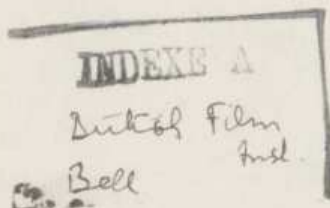 INDEXE A
British Film
Inst.
Bell